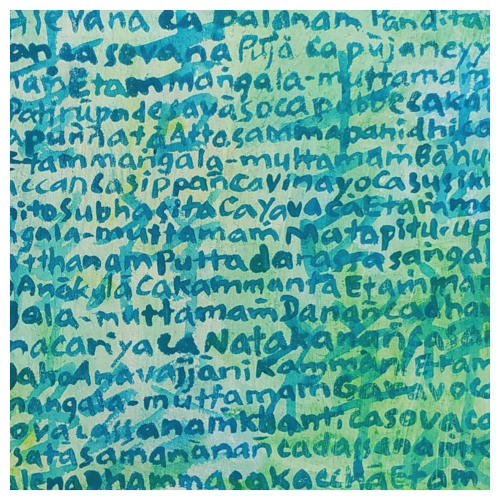 asevana ca balanam Pandita
sevana Pūjā ca pūjaneyy
Etam mangala-muttamam
Patirupadesavāsoca pubbe caka
puññata Atta sammapanidhi ca
Etam mangala-muttamaṁ Bāhu
ccan ca sippañ ca vinayo ca susi
ito Subhasita ca Yava ca Etam ma
gala-muttamam Matapitu-up
tthanam Putta darassa sangah
Anakula ca kammanta Etam man
gala-muttamaṁ Danañ cadha
macariya ca Natakanañcasan
aho Anavajjāni Kammani Etam
mangala-muttamam Garavo ca
anam khanti ca sovaca
sata samananañ cadassanam k
lena Dhammasakaccha Etam